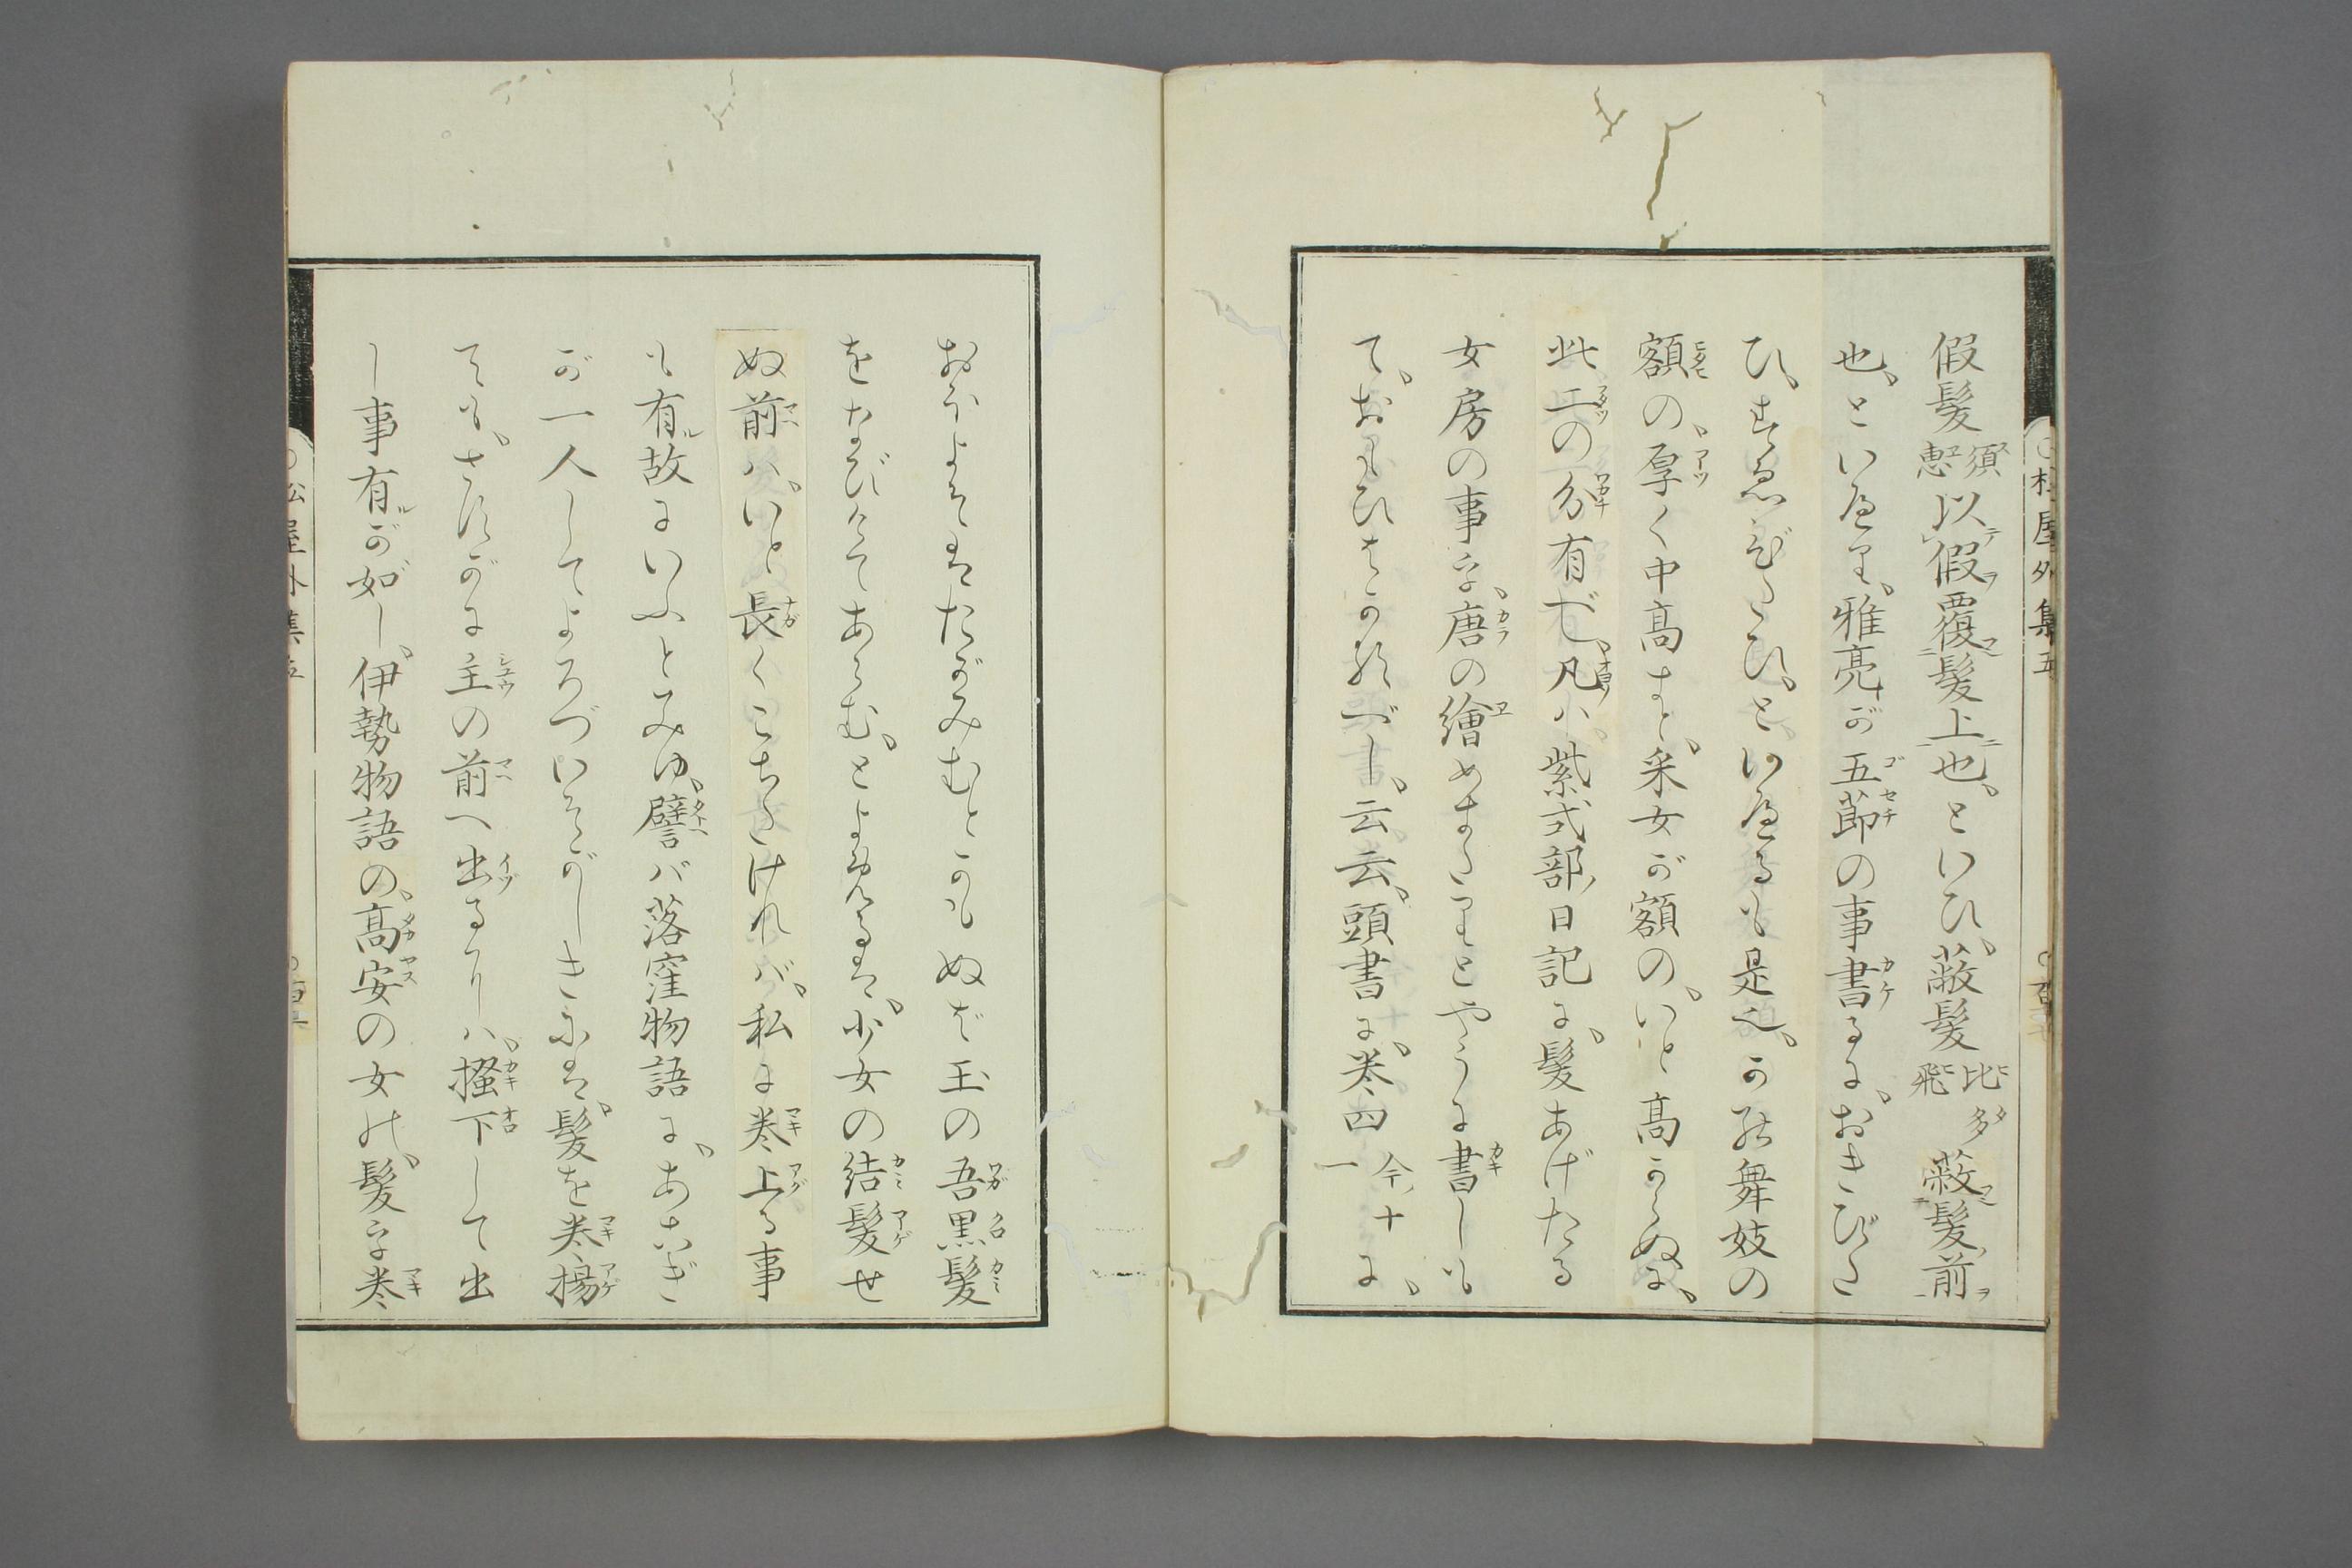 假髪 須恵 以假覆髪上也、といひ、蔽髪 比多飛 蔽髪前
也、といへり、雅亮が五節の事書るに、おきびた
ひ、すゑびたひ、といへるも是也、かの舞妓の
額の、厚く中高きと、釆女が額の、いと高からぬに、
此二の分有ど、凡ハ、紫式部日記に、髪あげたる
女房の事を、唐の繪めきたりとやうに書しも
て、おもひはかるべし、云云、頭書に、巻四 今、十一 に、
おほよそはたがみむとかもぬば玉の吾黒髪
をなびけてあらむ、とよめるは、少女の結髪せ
ぬ前ハ、いと長くこちたければ、私に巻上る事
も有故にいふとみゆ、譬バ落窪物語に、あこぎ
が一人してよろづいそがしきには、髪を巻揚
ても、さすがに主の前へ出るをりハ、搔下して出
し事有が如し、伊勢物語の、高安の女の、髪を巻
松屋外集五
松屋外集五